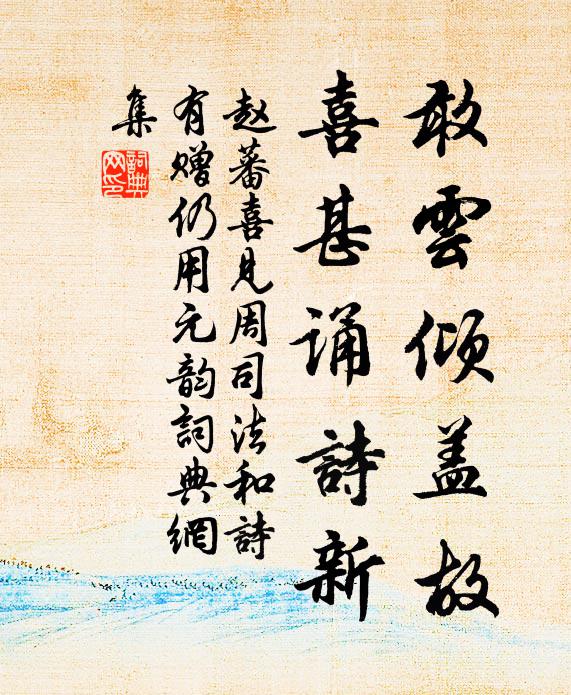 敢雲倾盖故
喜甚诵詩新
赵蕃喜見周司法和詩
有赠仍用元韵詞典網
集
詞典
网印